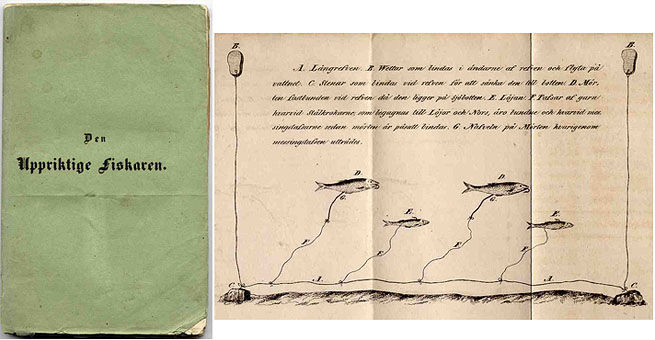 Den
Uppriktige Fiskaren.
B.
B.
A. Långrefven. B. Wettar som bindas i ändarne af refven och flyta på
vattnet. C. Stenar som bindas vid refven för att sänka den till botten. D. Mör-
ten fastbunden vid refven då den ligger på sjöbotten. E. Löjan. F. Tafsar af garn
hvarvid Stålkrokarne som begagnas till Löjor och Nors, äro bundne och hvarvid mes
singstafsarne sedan mörten är påsatt bindas. G Nafveln på Mörten hvarigenom
messingstafsen utträdes.
D.
D.
G.
G.
E.
E.
F.
F.
F.
F.
A.
A.
C.
C.